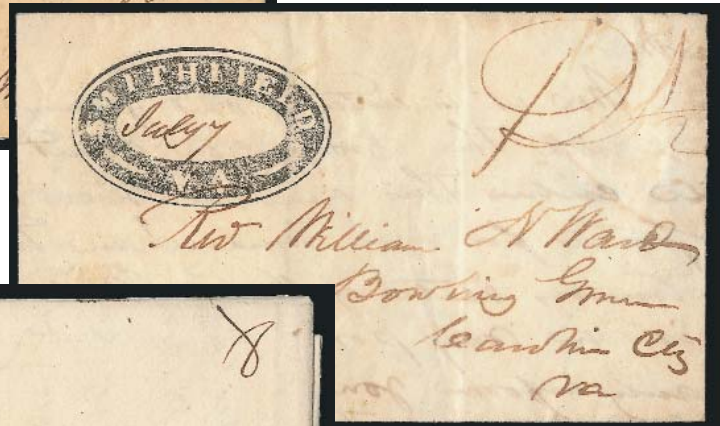 SMITHFIELD
July 7
VA
Rev William N Ward
Bowling Green
Caroline Cty
Va
8